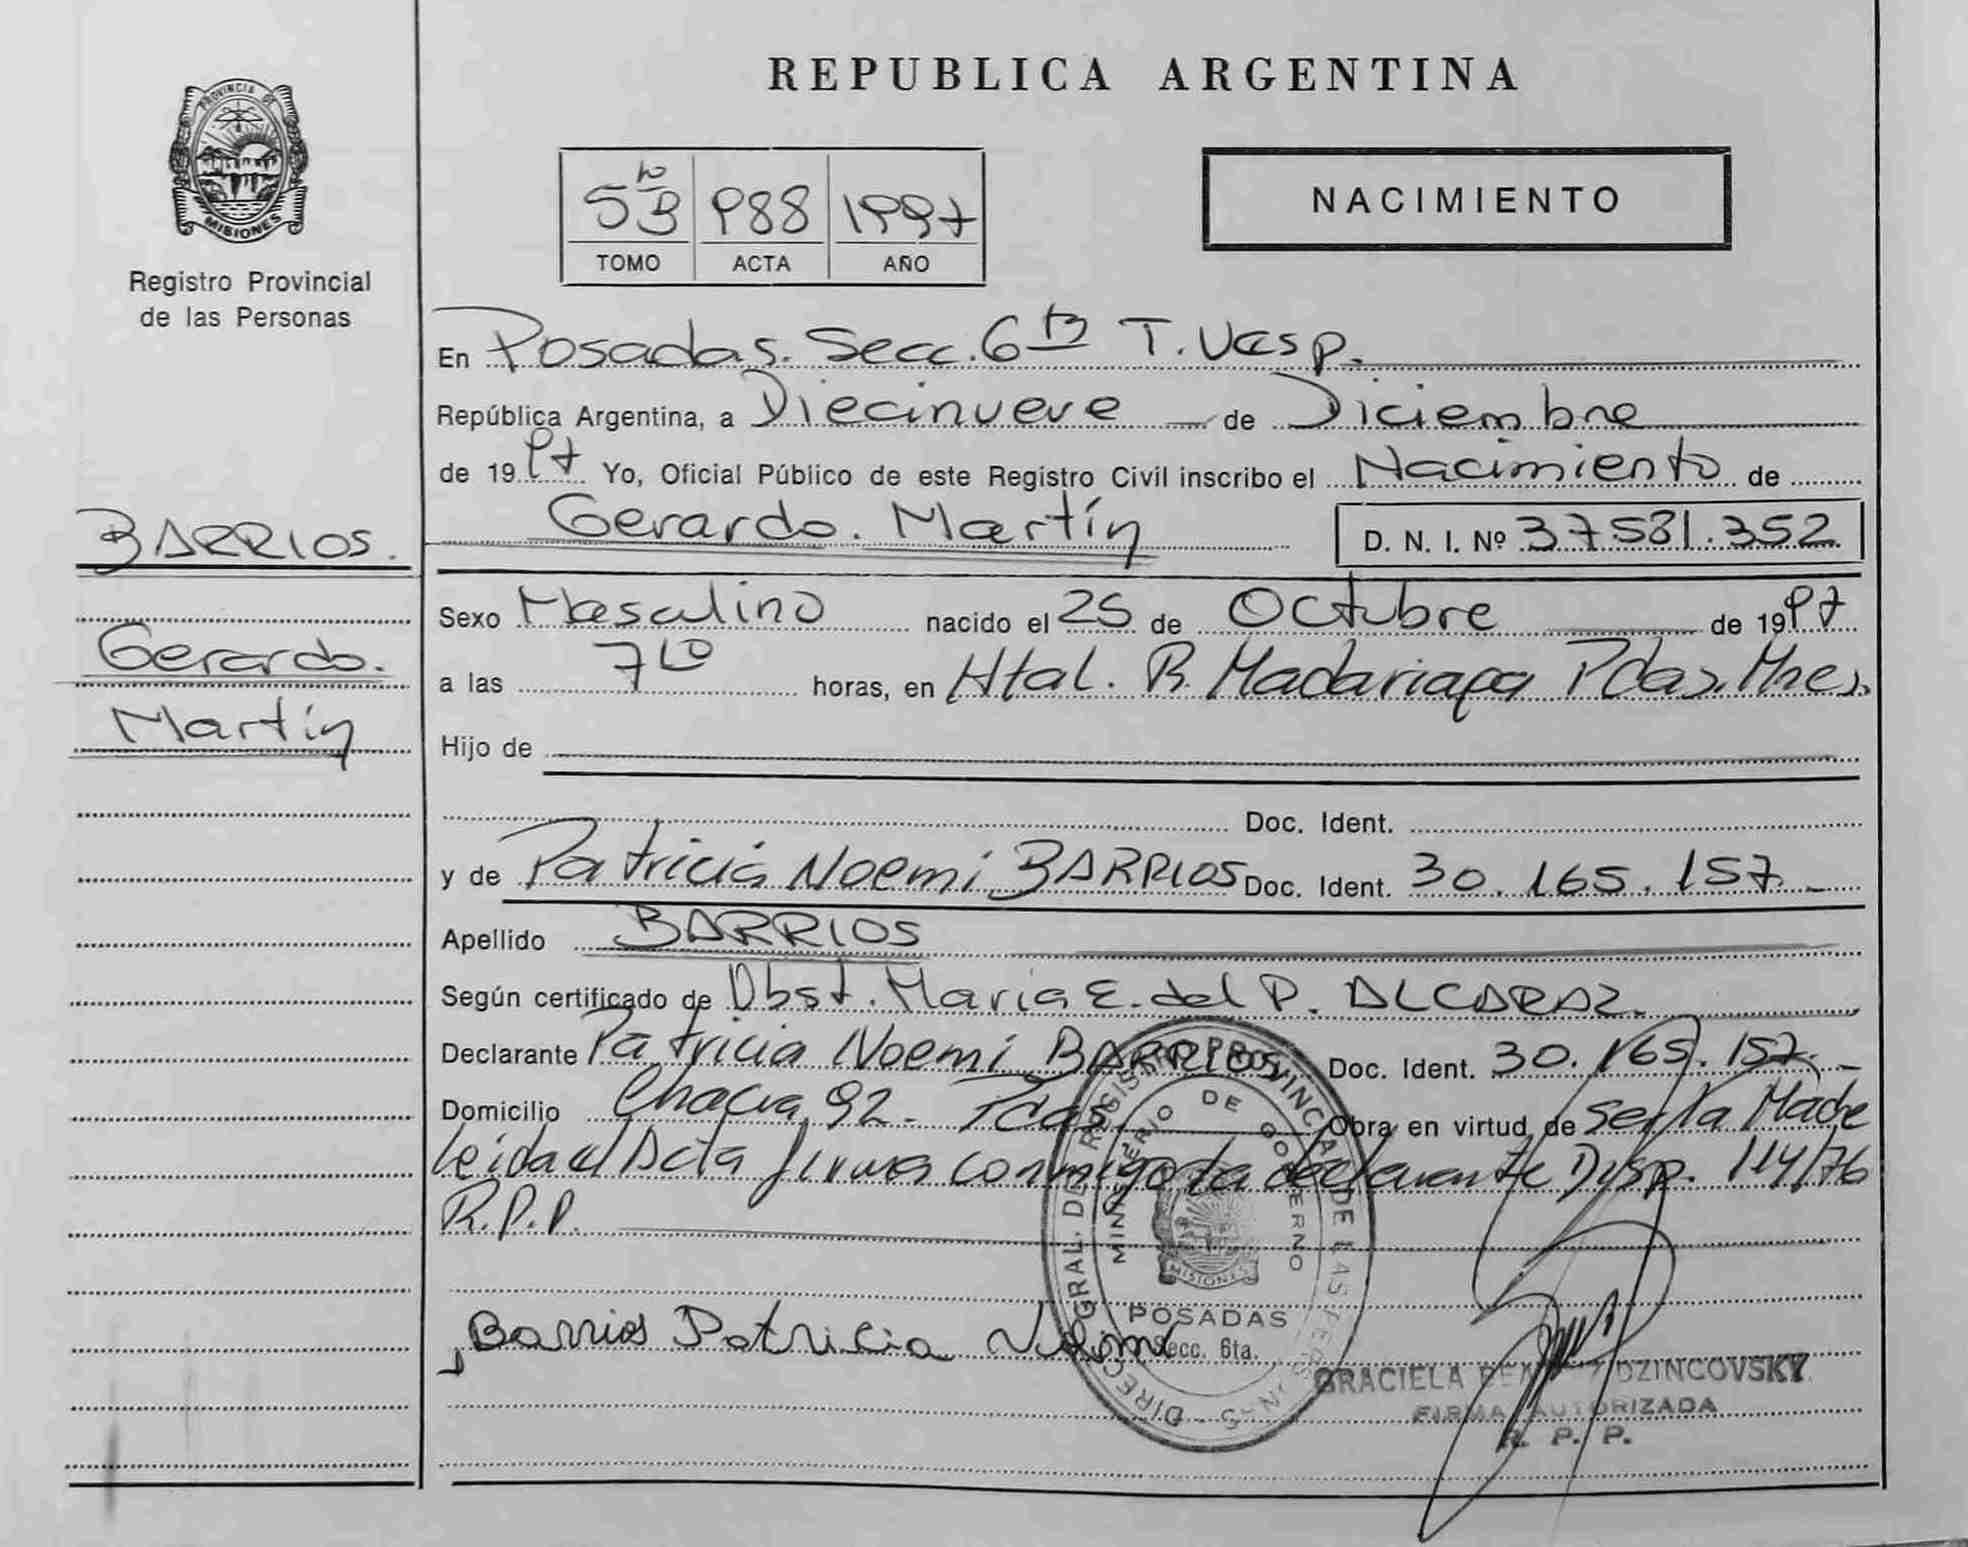 REPUBLICA ARGENTINA
PROVINCIA DE
MISIONES
Registro Provincial
de las Personas
NACIMIENTO
988 1997
TOMO ACTA AÑO
En Posadas. Secc. 6ta T. Vesp.
República Argentina, a Diecinueve de Diciembre
de 1997 Yo, Oficial Público de este Registro Civil inscribo el Nacimiento de
BARRIOS.
Gerardo. Martín D. N. I. Nº 37.581.352
Sexo Masculino nacido el 25 de Octubre de 1997
Gerardo.
Martín
a las 7 horas, en Htal. R. Madariaga Pdas. Mnes.
Hijo de
Doc. Ident.
y de Patricia Noemi BARRIOS Doc. Ident. 30.165.157.
Apellido BARRIOS
Según certificado de Obst. Maria E. del P. ALCARAZ.
Declarante Patricia Noemi BARRIOS Doc. Ident. 30.165.157.
Domicilio Chacra 92 - Pdas Obra en virtud de ser la Madre
leida el Acta firma conmigo la declarante Disp. 114/76
R.P.P.
DIREC. GRAL. DE REGISTRO PROVINCIAL DE LAS PERSONAS
MINISTERIO DE GOBIERNO
MISIONES
POSADAS
Secc. 6ta.
Barrios Patricia Noemi
GRACIELA DZINCOVSKY
FIRMA AUTORIZADA
R. P. P.